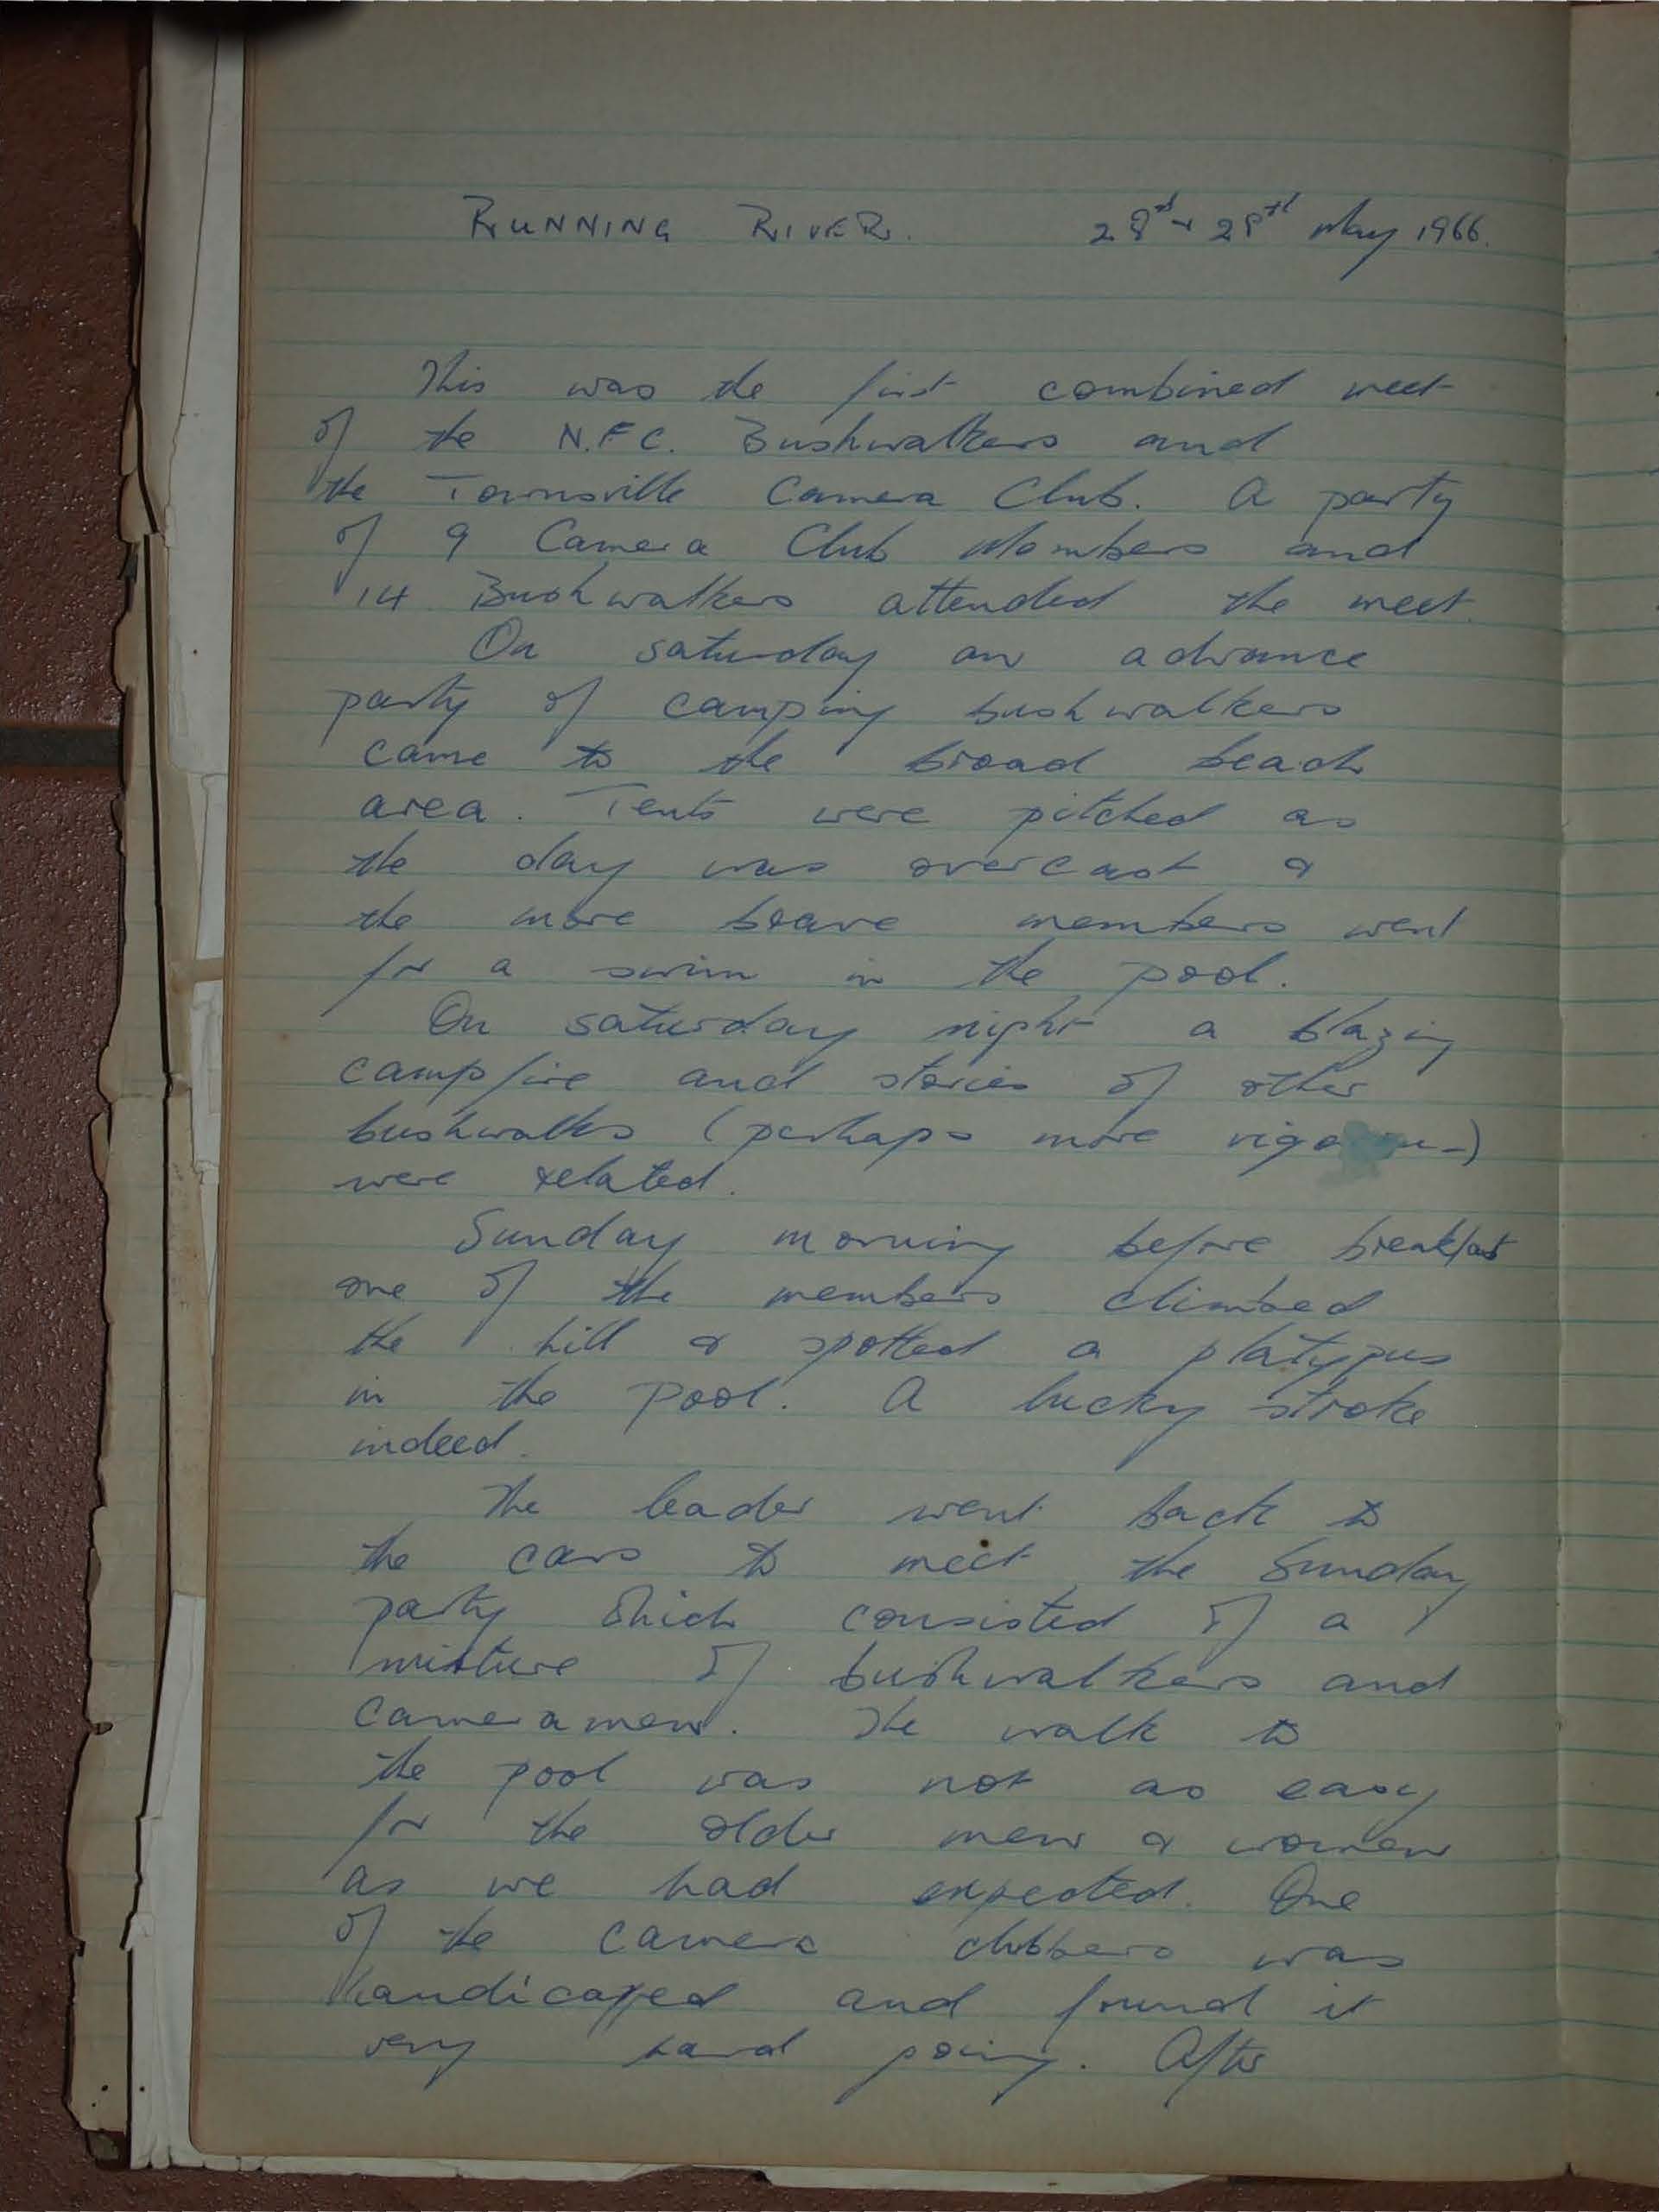 RUNNING RIVER. 28th & 29th May 1966.
This was the first combined meet
of the N.F.C. Bushwalkers and
the Townsville Camera Club. A party
of 9 Camera Club Members and
14 Bushwalkers attended the meet.
On saturday an advance
party of camping bushwalkers
came to the broad beach
area. Tents were pitched as
the day was overcast &
the more brave members went
for a swim in the pool.
On saturday night a blazing
campfire and stories of other
bushwalks (perhaps more
were related.
Sunday morning before breakfast
one of the members climbed
the hill & spotted a platypus
in the pool. A lucky stroke
indeed.
The leader went back to
the cars to meet the Sunday
party which consisted of a
mixture of bushwalkers and
cameramen. The walk to
the pool was not as easy
for the older men & women
as we had expected. One
of the camera clubbers was
handicapped and found it
very hard going. After